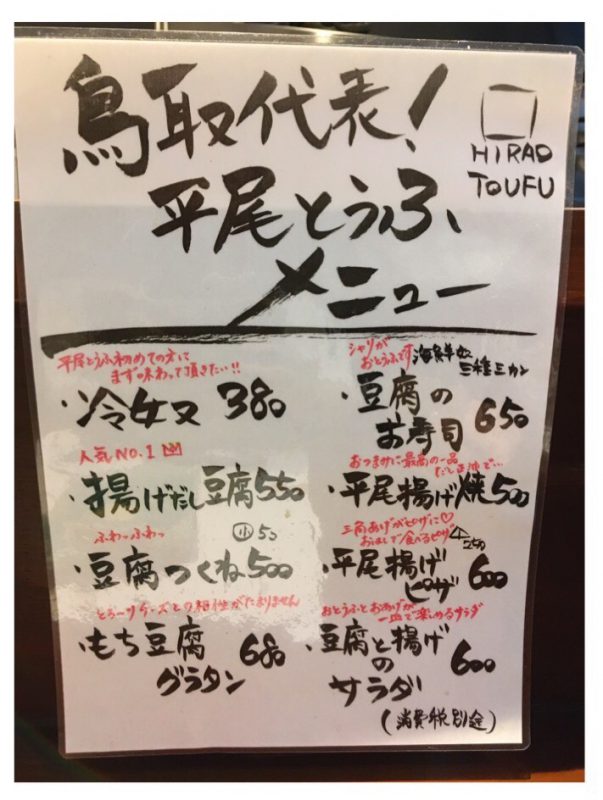 鳥取代表!
平尾とうふ
メニュー
HIRAO
TOUFU
平尾とうふ初めての方に
まず味わって頂きたい!!
・冷奴 380
人気NO.1
・揚げだし豆腐 550
ふわっふわっ
小50
・豆腐つくね 500
とろ〜りチーズとの相性がたまりません
・もち豆腐
グラタン 680
シャリが
おとうふです
海鮮奴
三種三カン
・豆腐の
お寿司 650
おつまみに最高の一品
だし正油で…
・平尾揚げ焼 500
三角あげがピザに♡
おはしで食べるピザ
250
・平尾揚げ
ピザ 600
おとうふとお揚げが
一皿で楽しめるサラダ
・豆腐と揚げ
の
サラダ 600
(消費税別途)